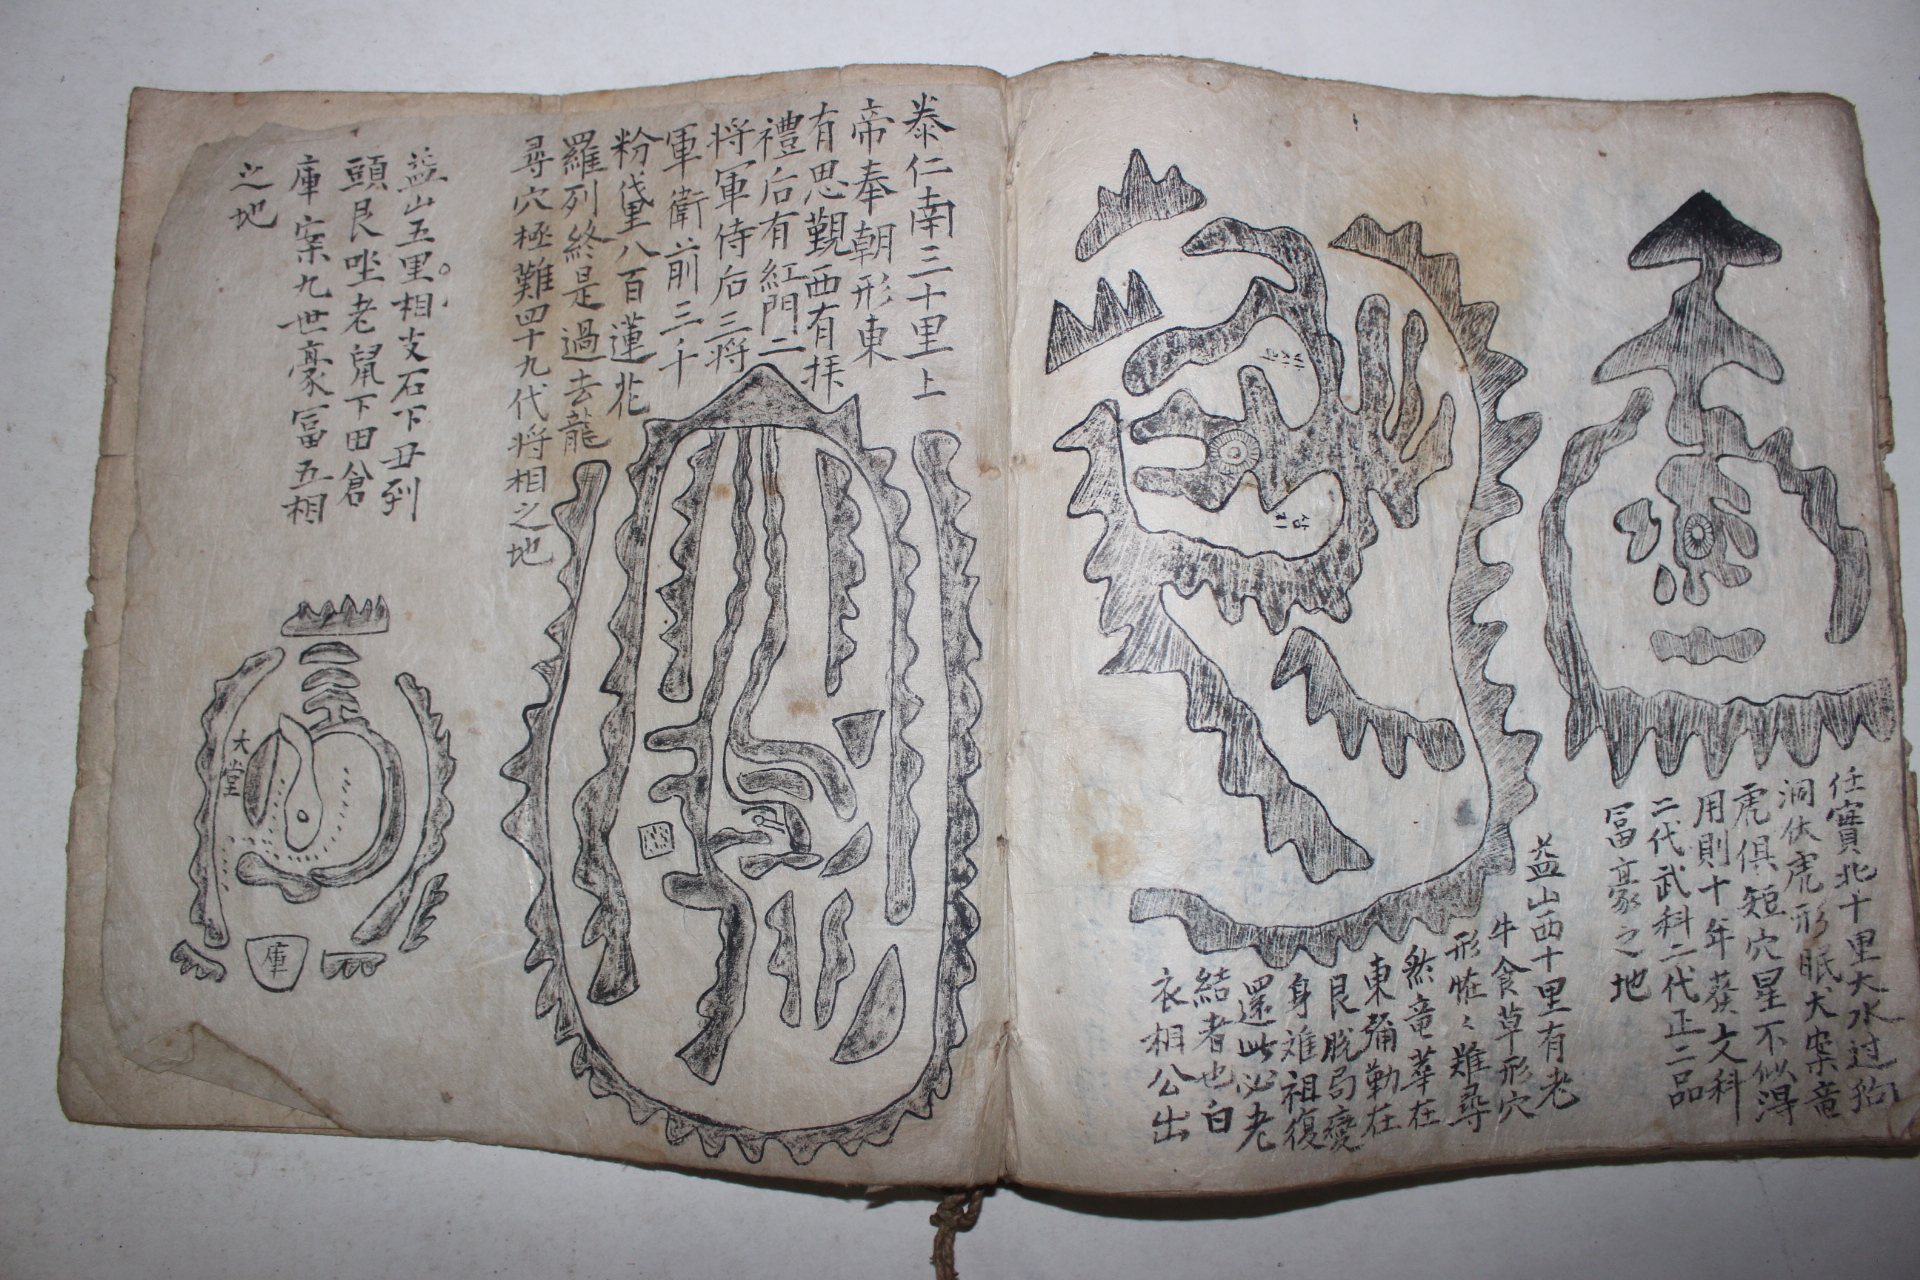 任實北十里大水过狗
洞伏虎形眠犬案竜
虎俱短穴星不似得
用則十年葵文科
二代武科二代正二品
冨豪之地
益山西十里有老
牛食草形穴
形怪々難尋
然竜華在
東彌勒在
艮脫局變
身难祖復
還此必老
結者也白
衣相公出
泰仁南三十里上
帝奉朝形東
有思觀西有拜
禮后有紅門二
将軍侍后三将
軍衛前三千
粉黛八百蓮花
羅列終是過去龍
尋穴極難四十九代将相之地
益山五里相支石下丑列
頭艮坐老鼠下田倉
庫案九世豪富五相
之地
大堂
庫